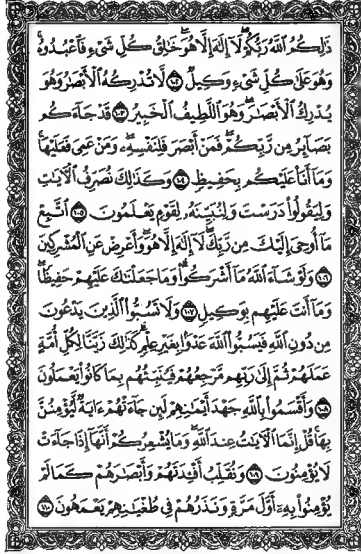 ذَٰلِكُمُ ٱللَّهُ رَبُّكُمْ ۖ لَآ إِلَٰهَ إِلَّا هُوَ ۖ خَٰلِقُ كُلِّ شَىْءٍ فَٱعْبُدُوهُ ۚ
وَهُوَ عَلَىٰ كُلِّ شَىْءٍ وَكِيلٌ ١٠٢ لَّا تُدْرِكُهُ ٱلْأَبْصَٰرُ وَهُوَ
يُدْرِكُ ٱلْأَبْصَٰرَ ۖ وَهُوَ ٱللَّطِيفُ ٱلْخَبِيرُ ١٠٣ قَدْ جَآءَكُم
بَصَآئِرُ مِن رَّبِّكُمْ ۖ فَمَنْ أَبْصَرَ فَلِنَفْسِهِۦ ۖ وَمَنْ عَمِىَ فَعَلَيْهَا ۚ
وَمَآ أَنَا۠ عَلَيْكُم بِحَفِيظٍ ١٠٤ وَكَذَٰلِكَ نُصَرِّفُ ٱلْءَايَٰتِ
وَلِيَقُولُوا۟ دَرَسْتَ وَلِنُبَيِّنَهُۥ لِقَوْمٍ يَعْلَمُونَ ١٠٥ ٱتَّبِعْ
مَآ أُوحِىَ إِلَيْكَ مِن رَّبِّكَ ۖ لَآ إِلَٰهَ إِلَّا هُوَ ۖ وَأَعْرِضْ عَنِ ٱلْمُشْرِكِينَ
١٠٦ وَلَوْ شَآءَ ٱللَّهُ مَآ أَشْرَكُوا۟ ۗ وَمَا جَعَلْنَٰكَ عَلَيْهِمْ حَفِيظًا ۖ
وَمَآ أَنتَ عَلَيْهِم بِوَكِيلٍ ١٠٧ وَلَا تَسُبُّوا۟ ٱلَّذِينَ يَدْعُونَ
مِن دُونِ ٱللَّهِ فَيَسُبُّوا۟ ٱللَّهَ عَدْوًۢا بِغَيْرِ عِلْمٍ ۗ كَذَٰلِكَ زَيَّنَّا لِكُلِّ أُمَّةٍ
عَمَلَهُمْ ثُمَّ إِلَىٰ رَبِّهِم مَّرْجِعُهُمْ فَيُنَبِّئُهُم بِمَا كَانُوا۟ يَعْمَلُونَ
١٠٨ وَأَقْسَمُوا۟ بِٱللَّهِ جَهْدَ أَيْمَٰنِهِمْ لَئِن جَآءَتْهُمْ ءَايَةٌ لَّيُؤْمِنُنَّ
بِهَا ۚ قُلْ إِنَّمَا ٱلْءَايَٰتُ عِندَ ٱللَّهِ ۖ وَمَا يُشْعِرُكُمْ أَنَّهَآ إِذَا جَآءَتْ
لَا يُؤْمِنُونَ ١٠٩ وَنُقَلِّبُ أَفْـِٔدَتَهُمْ وَأَبْصَٰرَهُمْ كَمَا لَمْ
يُؤْمِنُوا۟ بِهِۦٓ أَوَّلَ مَرَّةٍ وَنَذَرُهُمْ فِى طُغْيَٰنِهِمْ يَعْمَهُونَ ١١٠